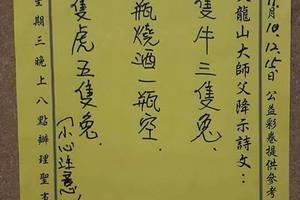 月10.12.15日公益彩卷提供參考
龍山大師父降示詩文：
隻牛三隻兔，
瓶燒酒一瓶空．
隻虎五隻兔．
（小心注意
星期三晚上八點辦理聖事